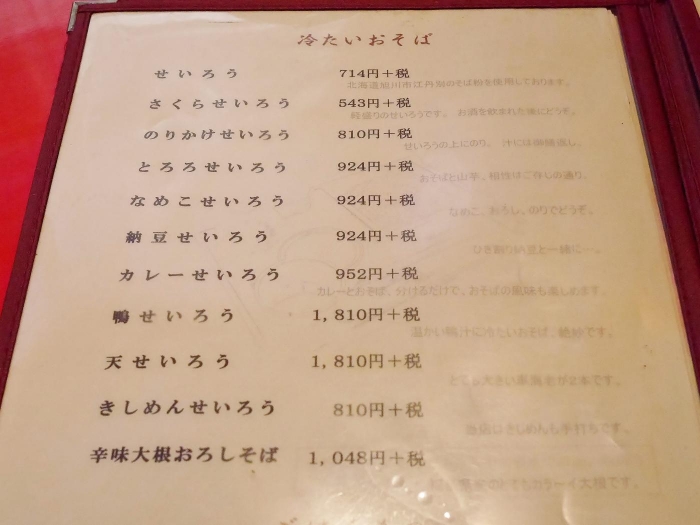 冷たいおそば
せいろう 714円＋税
北海道旭川市江丹別のそば粉を使用しております。
さくらせいろう 543円＋税
軽盛りのせいろうです。 お酒を飲まれた後にどうぞ。
のりかけせいろう 810円＋税
せいろうの上にのり。 汁には
とろろせいろう 924円＋税
おそばと山芋、相性はご存じの通り。
なめこせいろう 924円＋税
なめこ、おろし、のりでどうぞ。
納豆せいろう 924円＋税
ひき割り納豆と一緒に―。
カレーせいろう 952円＋税
カレーとおそば、分けるだけで、おそばの風味も楽しめます。
鴨せいろう 1,810円＋税
温かい鴨汁に冷たいおそば、絶妙です。
天せいろう 1,810円＋税
とても大きい 海老が2本です。
きしめんせいろう 810円＋税
当店はきしめんも手打ちです。
辛味大根おろしそば 1,048円＋税